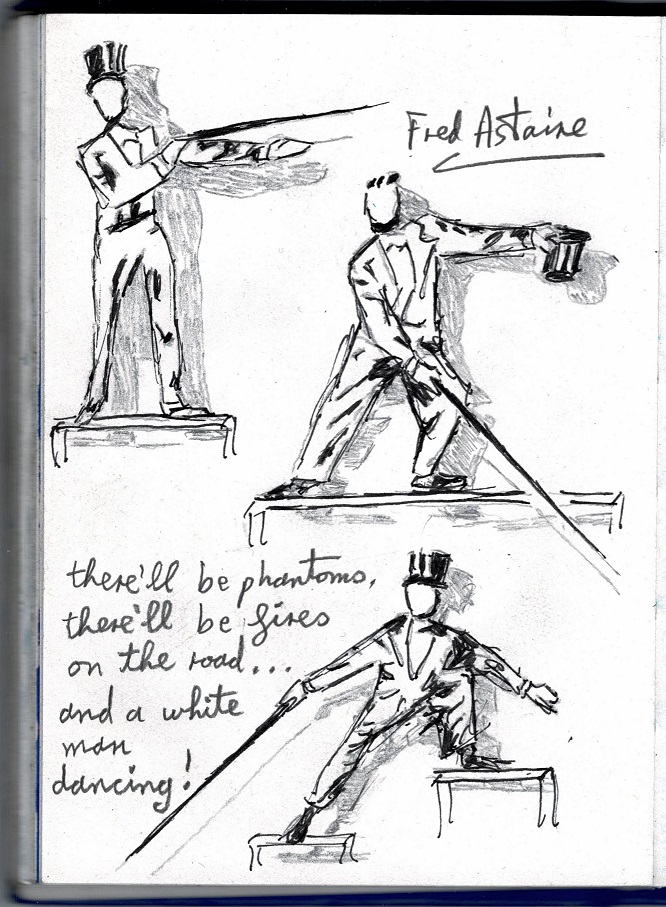 Fred Astaire
there'll be phantoms,
there'll be fires
on the road...
and a white
man
dancing!